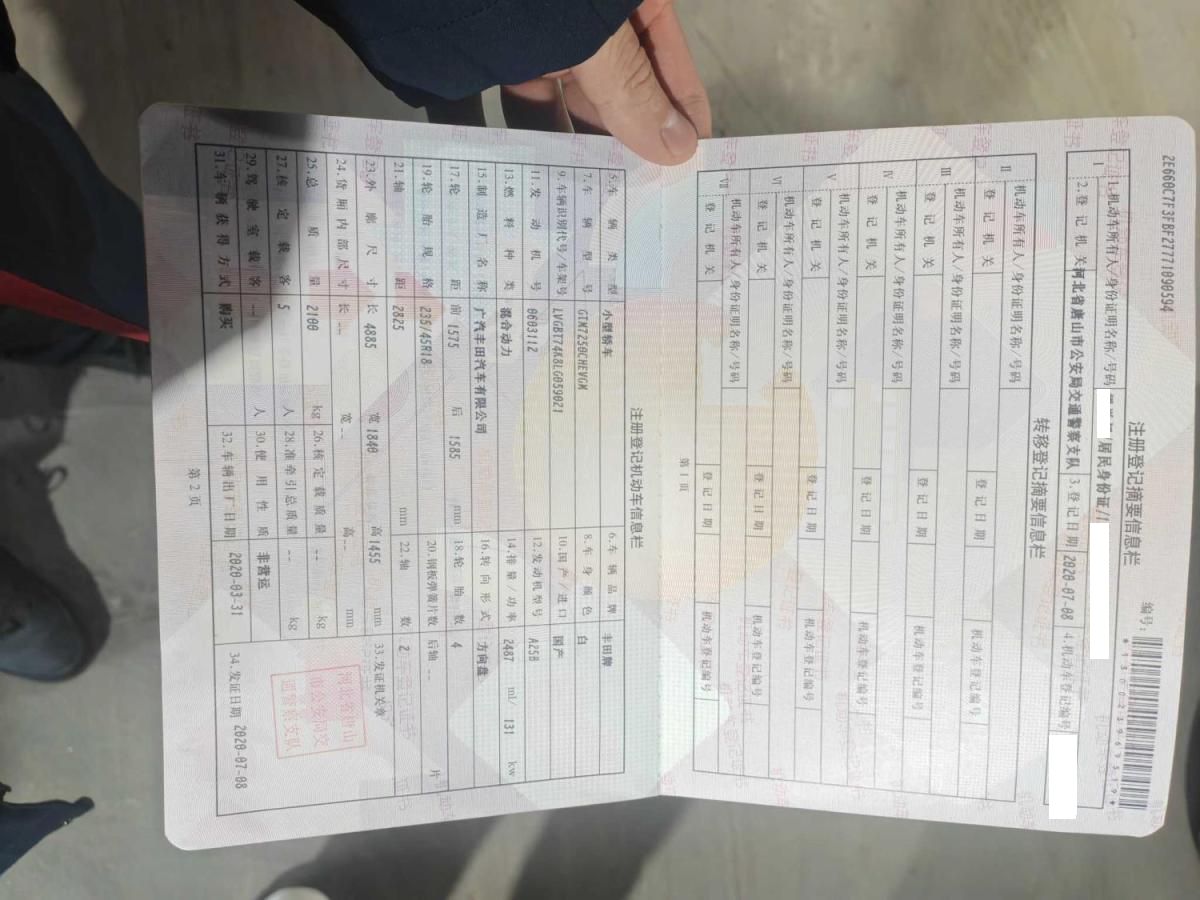 2E660C7F3FBF27771090594
注册登记摘要信息栏
编号:
*130023967519*
Ⅰ
1.机动车所有人/身份证明名称/号码
/居民身份证/
2.登记机关
河北省唐山市公安局交通警察支队
3.登记日期
2020-07-08
4.机动车登记编号
转移登记摘要信息栏
Ⅱ
机动车所有人/身份证明名称/号码
登记机关
登记日期
机动车登记编号
Ⅲ
机动车所有人/身份证明名称/号码
登记机关
登记日期
机动车登记编号
Ⅳ
机动车所有人/身份证明名称/号码
登记机关
登记日期
机动车登记编号
Ⅴ
机动车所有人/身份证明名称/号码
登记机关
登记日期
机动车登记编号
Ⅵ
机动车所有人/身份证明名称/号码
登记机关
登记日期
机动车登记编号
Ⅶ
机动车所有人/身份证明名称/号码
登记机关
登记日期
机动车登记编号
第1页
注册登记机动车信息栏
5.车辆类型 小型轿车 6.车辆品牌 丰田牌
7.车辆型号 GTM7250CHEVGM 8.车身颜色 白
9.车辆识别代号/车架号 LVGBT74K8LG059021 10.国产/进口 国产
11.发动机号 0603112 12.发动机型号 A25B
13.燃料种类 混合动力 14.排量/功率 2487 ml/ 131 kw
15.制造厂名称 广汽丰田汽车有限公司 16.转向形式 方向盘
17.轮距 前 1575 后 1585 mm 18.轮胎数 4
19.轮胎规格 235/45R18 20.钢板弹簧片数 后轴 -- 片
21.轴距 2825 mm 22.轴数 2
23.外廓尺寸 长 4885 宽 1840 高 1455 mm 33.发证机关章
24.货厢内部尺寸 长 -- 宽 -- 高 -- mm
25.总质量 2100 kg 26.核定载质量 -- kg
27.核定载客 5 人 28.准牵引总质量 -- kg
29.驾驶室载客 -- 人 30.使用性质 非营运
31.车辆获得方式 购买 32.车辆出厂日期 2020-03-31 34.发证日期 2020-07-08
河北省唐山
市公安局交
通警察支队
第2页